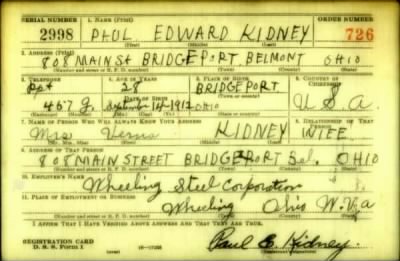 SERIAL NUMBER 1. NAME (Print) ORDER NUMBER
2998 PAUL EDWARD KIDNEY 726
(First) (Middle) (Last)
2. ADDRESS (Print)
808 MAIN St BRIDGEPORT, BELMONT OHIO
(Number and street or R. F. D. number) (Town) (County) (State)
3. TELEPHONE 4. AGE IN YEARS 5. PLACE OF BIRTH 6. COUNTRY OF CITIZENSHIP
Bpt 28 BRIDGEPORT
DATE OF BIRTH (Town or county)
467 J. September 14-1912 OHIO U.S.A.
7. NAME OF PERSON WHO WILL ALWAYS KNOW YOUR ADDRESS 8. RELATIONSHIP OF THAT PERSON
Mrs Verna KIDNEY WIFE
(Mr., Mrs., Miss) (First) (Middle) (Last)
9. ADDRESS OF THAT PERSON
808 MAIN STREET BRIDGEPORT Bel. OHIO
(Number and street or R. F. D. number) (Town) (County) (State)
10. EMPLOYER'S NAME
Wheeling Steel Corporation
11. PLACE OF EMPLOYMENT OR BUSINESS
Wheeling Ohio W. Va
(Number and street or R. F. D. number) (Town) (County) (State)
I AFFIRM THAT I HAVE VERIFIED ABOVE ANSWERS AND THAT THEY ARE TRUE.
REGISTRATION CARD
D. S. S. Form 1 16-17105 Paul E. Kidney.